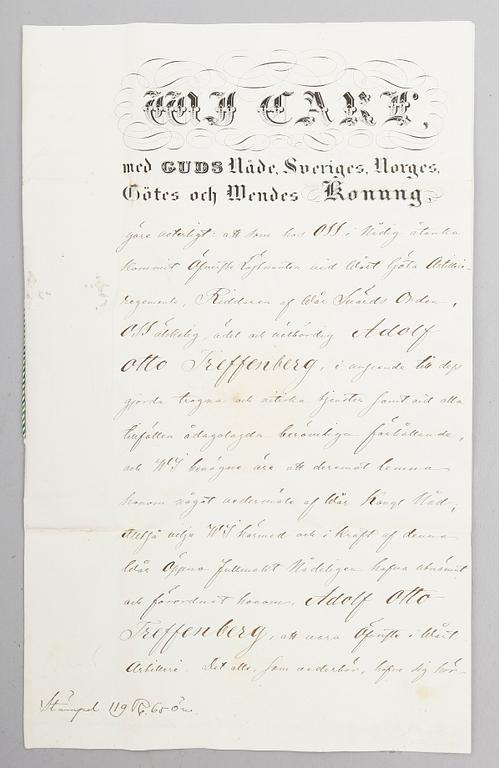 WJ CARL,
med GUDS Nåde, Sveriges, Norges,
Götes och Wendes Konung,
göre veterligt: att som hos OSS i Nådig åtanke
kommit Öfverste Löjtnanten vid Wårt Göta Artilleri-
regemente, Riddaren af Wår Svärds Orden,
OSS älskelig, ädel och välbördig Adolf
Otto Treffenberg, i anseende till dess
gjorda trogna och nitiska tjenster samt vid alla
tillfällen ådagalagda berömliga förhållande,
och WJ benägne äre att deremot lemna
honom något vedermäle af Wår Kongl Nåd,
Altså vilja WJ härmed och i kraft af denna
Wår öppna fullmakt Nådeligen hafva utnämnt
och förordnat honom, Adolf Otto
Treffenberg, att vara Öfverste i Wårt
Artilleri. Det alle, som vederbör, hafva sig hör-
Stämpel 119 65 öre